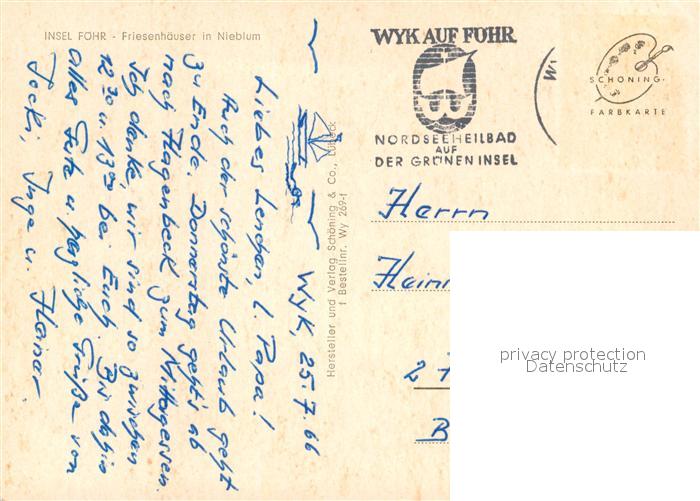 INSEL FÖHR - Friesenhäuser in Nieblum
WYK AUF FÖHR
NORDSEEHEILBAD
AUF
DER GRÜNEN INSEL
SCHÖNING
FARBKARTE
Hersteller und Verlag Schöning & Co., Lübeck
Bestellnr. Wy 269-f
Wyk, 25.7.66
Liebes Lenchen, l. Papa!
Auch der schönste Urlaub geht
zu Ende. Donnerstag geht's ab
nach Hagenbeck zum Mittagessen.
Ich danke, wir sind so zwischen
12³⁰ u. 13⁰⁰ bei Euch. Bis dahin
alles Gute u. herzliche Grüße von
Jocki, Inge u. Heiner.
Herrn
Hein
2
B
privacy protection
Datenschutz